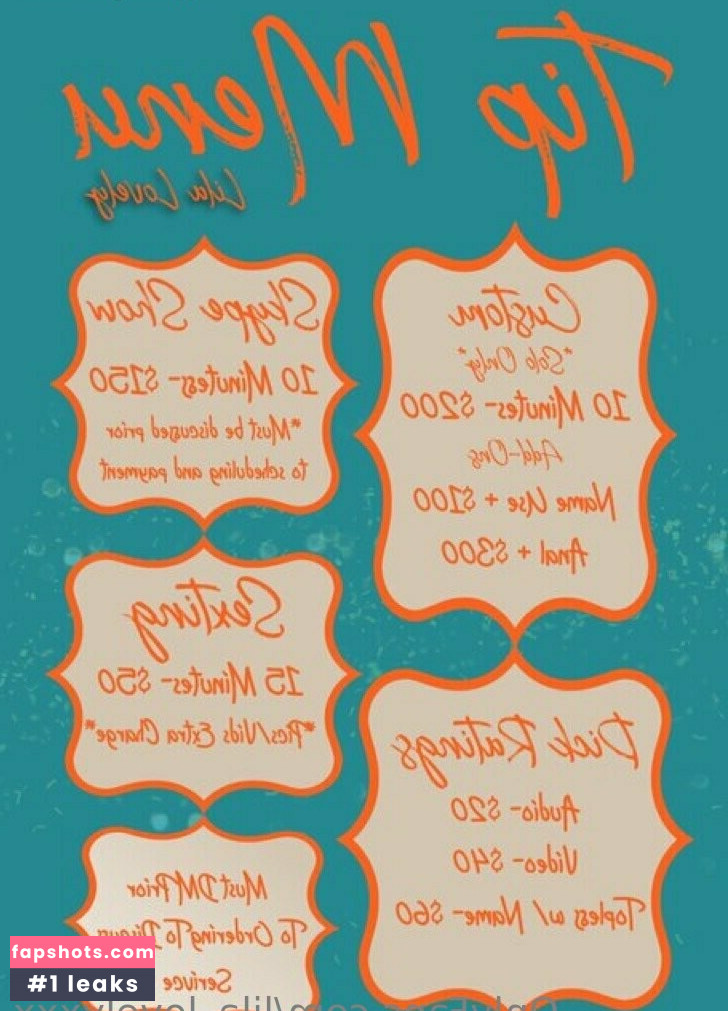 Tip Menu
Lila Lovely
Custom
*Solo Only*
10 Minutes- $200
Add-Ons
Name Use + $100
Anal + $300
Skype Show
10 Minutes- $150
*Must be discussed prior
to scheduling and payment
Sexting
15 Minutes- $50
*Pics/Vids Extra Charge*
Dick Ratings
Audio- $20
Video- $40
Topless w/ Name- $60
Must DM Prior
To Ordering To Discuss
Serivce
fapshots.com
#1 leaks